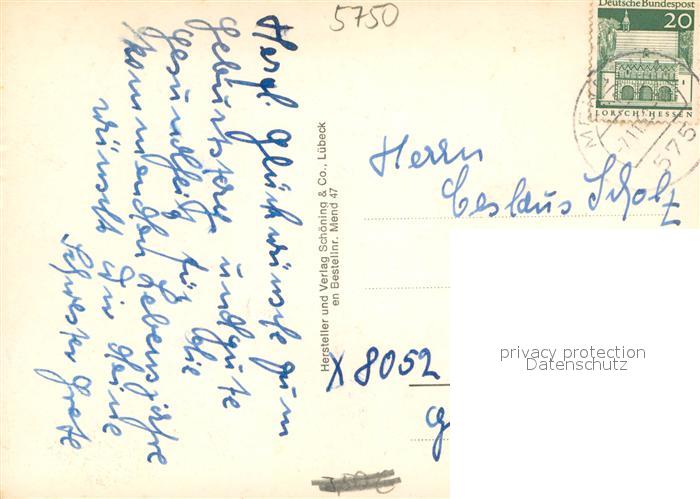 5750
Deutsche Bundespost
20
LORSCH/HESSEN
575
Herzl. Glückwünsche zum
Geburtstage und gute
Gesundheit für die
kommenden Lebensjahre
wünscht Dir deine
Schwester Grete
Hersteller und Verlag Schöning & Co., Lübeck
en Bestellnr. Mend 47
Herrn
Ceslaus Scholz
X 8052
privacy protection
Datenschutz